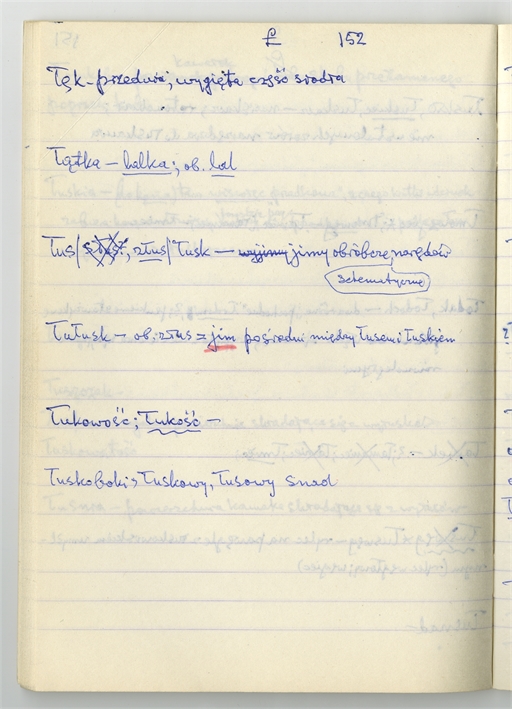 Ł 152
Łęk – przednia, wygięta część siodła
Łątka – lalka; ob. lal
Łus / złus / Łusk – jimy obróbcze, narzędów
schematyczne
Łułusk – ob. złus = jim pośredni między Łusem i Łuskiem
Łukowość; Łukość –
Łuskoboki, Łuskowy, Łusowy snad